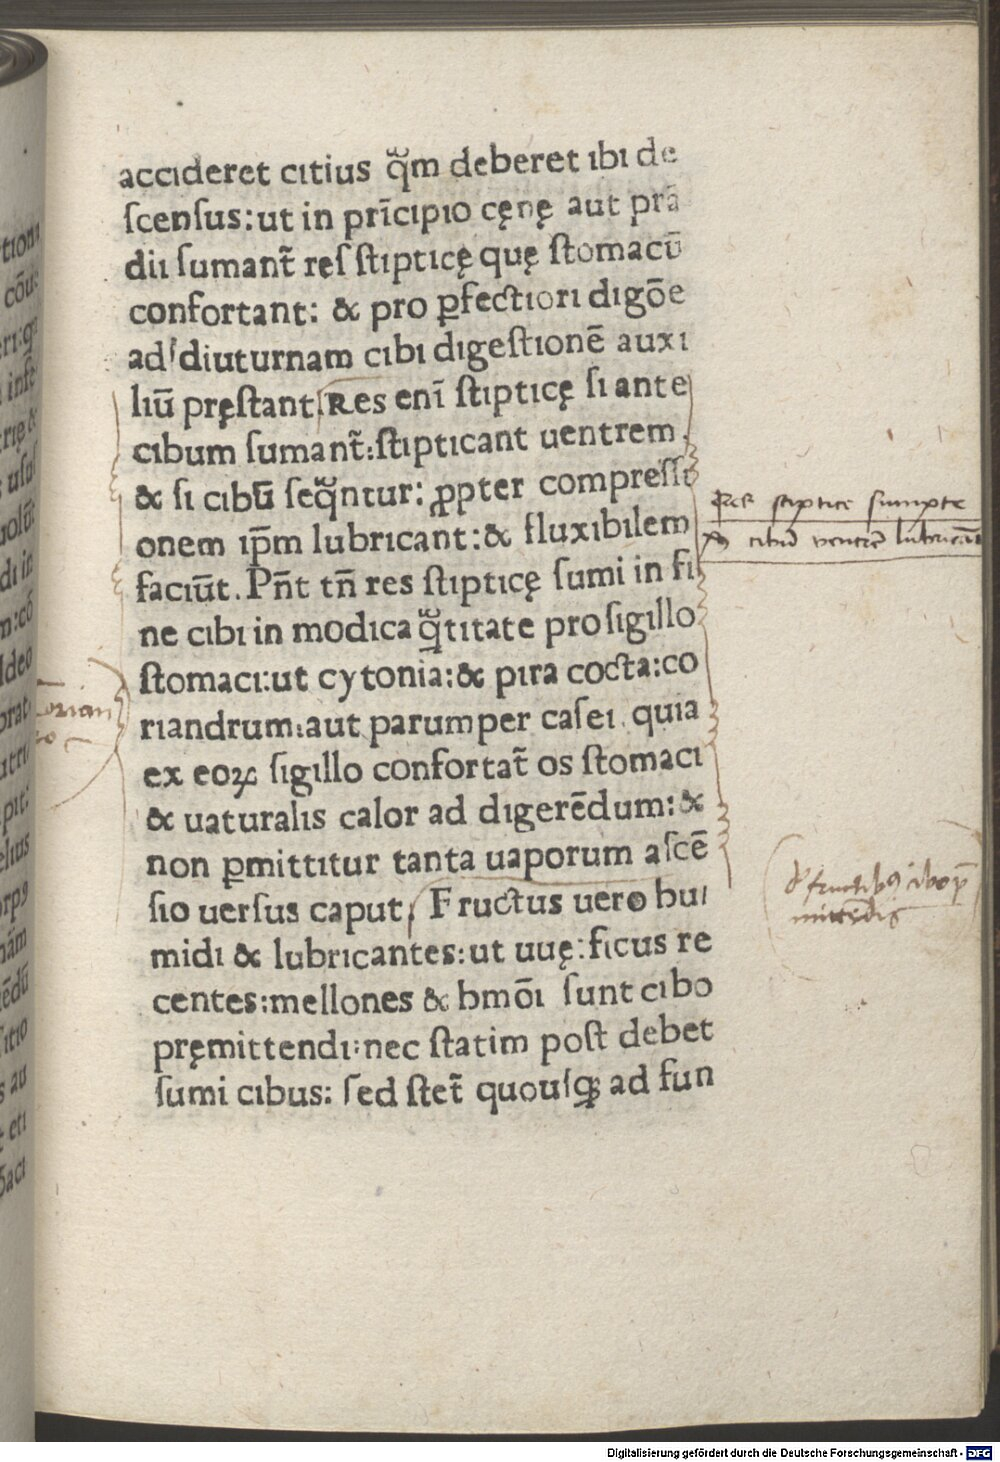 accideret citius qᷓm deberet ibi de
ſcenſus: ut in prīcipio cęnę aut prā
dii ſumant̃ reſ ſtipticę quę ſtomacū
confortant: & pro ꝑfectiori digōe
ad diuturnam cibi digeſtionē auxi
liū pręſtant. Res enī ſtipticę ſi ante
cibum ſumant̃: ſtipticant uentrem.
& ſi cibū ſeqᷓntur: ꝓpter compreſſi
onem ip̄m lubricant: & fluxibilem
faciūt. Pn̄t tn̄ res ſtipticę ſumi in fi
ne cibi in modica qᷓtitate pro ſigillo
ſtomaci: ut cytonia: & pira cocta: co
riandrum: aut parumper caſei. quia
ex eoꝝ ſigillo confortat̃ os ſtomaci
& uaturalis calor ad digerēdum: &
non ꝑmittitur tanta uaporum aſcē
ſio uerſus caput. Fructus uero hui
midi & lubricantes: ut uuę: ficus re
centes: mellones & hmōi ſunt cibo
pręmittendi: nec ſtatim poſt debet
ſumi cibus: ſed ſtet̃ quouſqꝫ ad fun
Res stiptice sumpte
cibū ventrē lubricāt
d' fructibꝫ cibo p̄
mittēdis